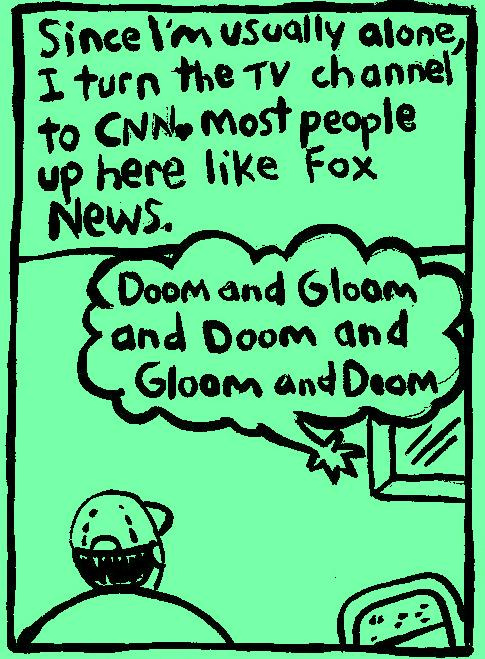 Since I'm usually alone,
I turn the TV channel
to CNN. most people
up here like Fox
News.
Doom and Gloom
and Doom and
Gloom and Doom